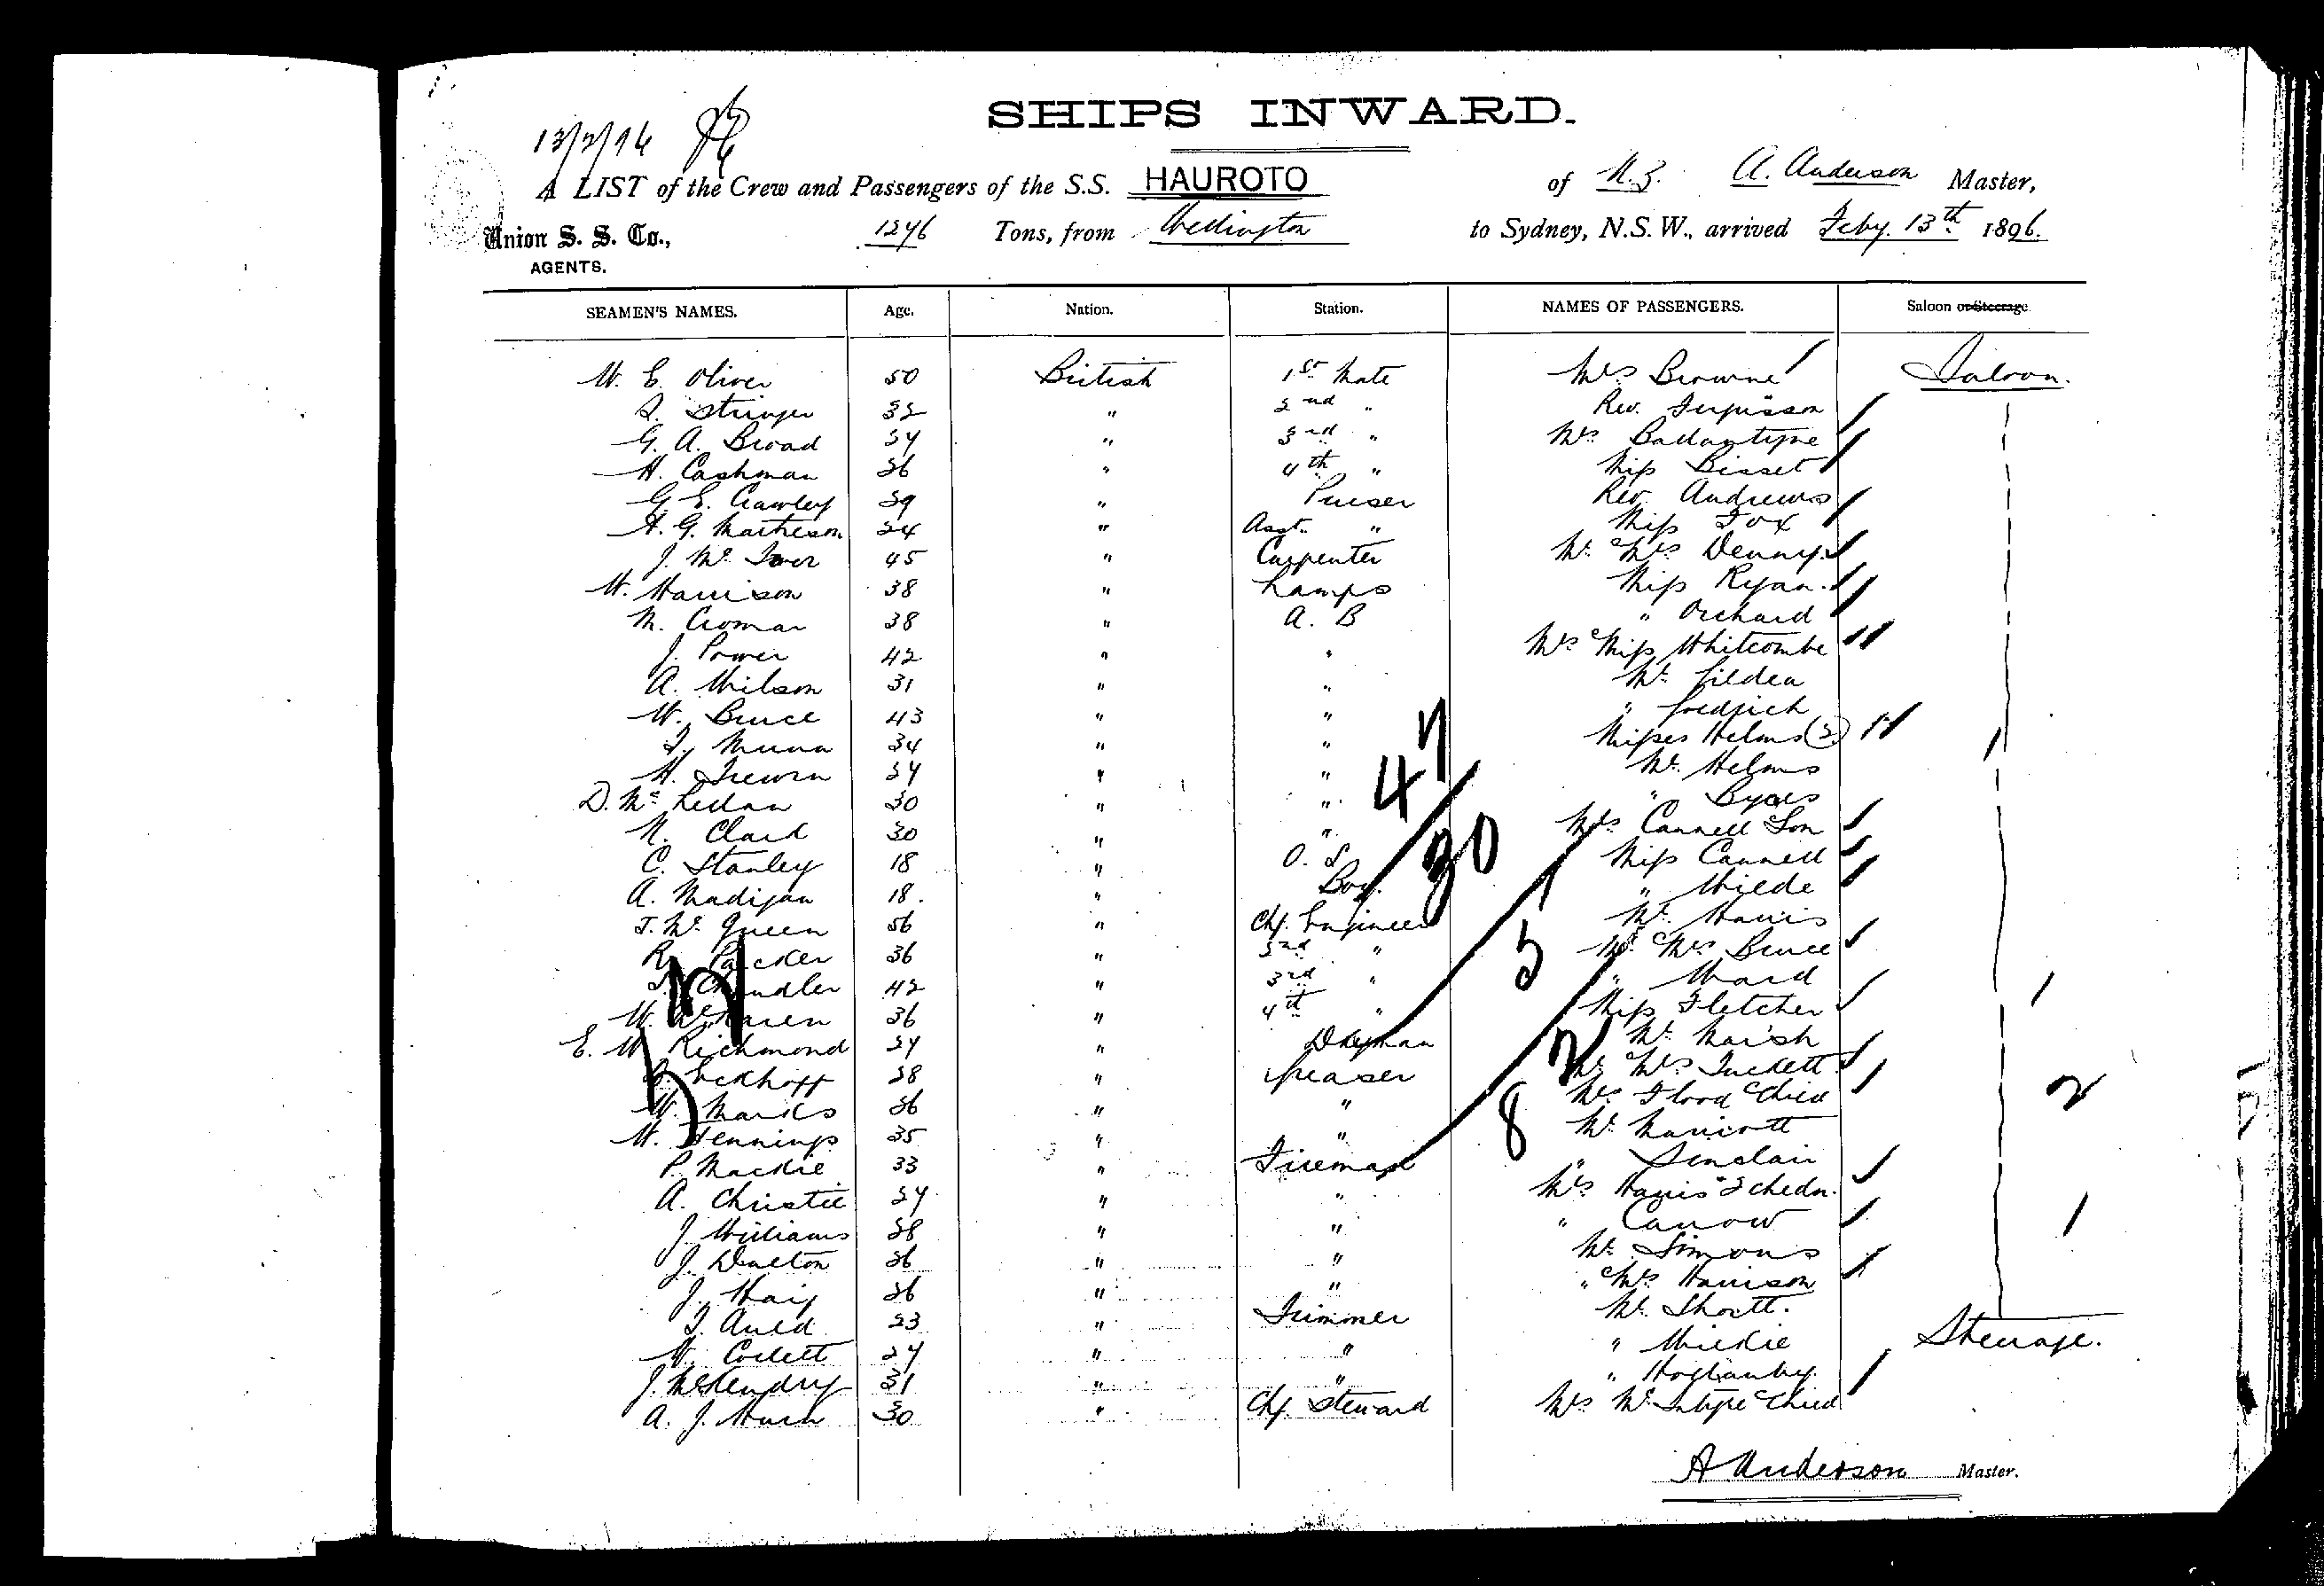 SHIPS INWARD.
13/2/96
A LIST of the Crew and Passengers of the S.S. HAUROTO of N.Z. A. Anderson Master,
Union S. S. Co., 1246 Tons, from Wellington to Sydney, N.S.W., arrived Feby. 13th 1896.
AGENTS.
SEAMEN'S NAMES. Age. Nation. Station. NAMES OF PASSENGERS. Saloon or Steerage
W. E. Oliver 50 British 1st Mate Mrs Browne Saloon.
Stringer 32 " 2nd " Rev. Fergusson
G. A. Broad 24 " 3rd " Mrs Ballantyne
H. Cashman 26 " 4th " Miss Bisset
G. E. Crawley 29 " Purser Rev. Andrews
A. G. Matheson 24 " Asst. " Miss Fox
J. Mc 45 " Carpenter Mr & Mrs Denny
W. Harrison 38 " Lamps Miss Ryan.
M. 38 " A. B " Orchard
J. Power 42 " " Mrs & Miss Whitcombe
A. Wilson 31 " " Mr Gildea
W. Bruce 43 " "
Munn 34 " " Misses Helms (2)
H. Trewin 24 " " Mr. Helms
D. Mc Lellan 30 " " "
N. Clark 30 " " Mrs Cannell & Son
C. Stanley 18 " O. S. Miss Cannell
A. Madigan 18. " Boy. " Wilde
J. Mc Queen 56 " Chf. Engineer Mr. Harris
R. Packer 36 " 2nd " Mr & Mrs Bruce
Chandler 42 " 3rd " " Ward
W. 36 " 4th " Miss Fletcher
E. W. Richmond 24 " Dkyman Mr. Marsh
Eckhoff 28 " Greaser Mr & Mrs Tuckett
W. Marks 26 " " Mrs Flood & Child
W. Jennings 35 " " Mr.
P. Mackie 33 " Fireman " Sinclair
A. Christie 24 " " Mrs Harris & 2 Chedn.
J. Williams 28 " " "
J. Dalton 26 " " Mr. Simons
J. Haig 26 " " " & Mrs Harrison
Auld 23 " Trimmer Mr. Shortt.
W. Corlett 24 " " " Steerage.
J. McKendry 31 " " "
A. J. 30 " Chf. Steward Mrs McIntyre & Child
47
30
5
2
8
17
1
2
1
A Anderson Master.